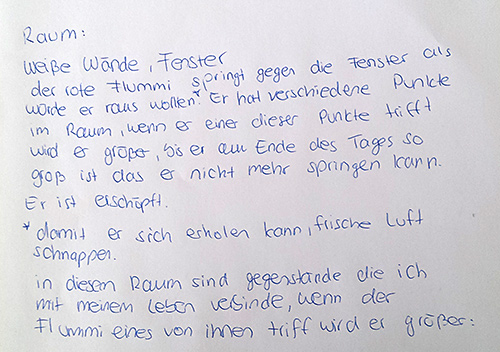 Raum:
weiße Wände, Fenster
der rote Flummi springt gegen die Fenster als
würde er raus wollen.* Er hat verschiedene Punkte
im Raum, wenn er einer dieser Punkte trifft
wird er größer, bis er am Ende des Tages so
groß ist das er nicht mehr springen kann.
Er ist erschöpft.
* damit er sich erholen kann, frische Luft
schnappen.
in diesem Raum sind gegenstände die ich
mit meinem Leben verbinde, wenn der
Flummi eines von ihnen triff wird er größer: